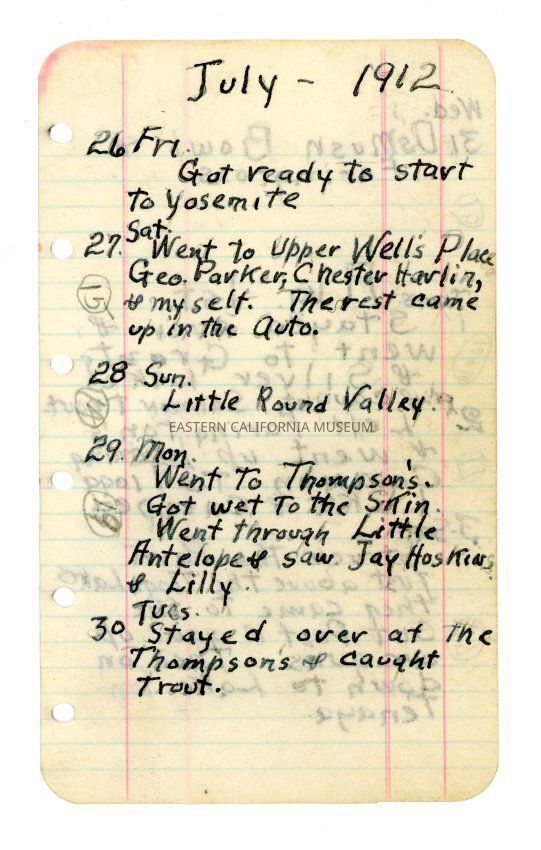 July - 1912
26 Fri.
Got ready to start
to Yosemite
Sat.
27. Went to Upper Well's Place
Geo. Parker, Chester Harlin,
& myself. The rest came
up in the Auto.
15
28 Sun.
Little Round Valley.
EASTERN CALIFORNIA MUSEUM
29. Mon.
Went To Thompson's.
Got wet To the Skin.
Went through Little
Antelope & saw Jay Hoskins
& Lilly.
Tues.
30 Stayed over at the
Thompson's & caught
Trout.